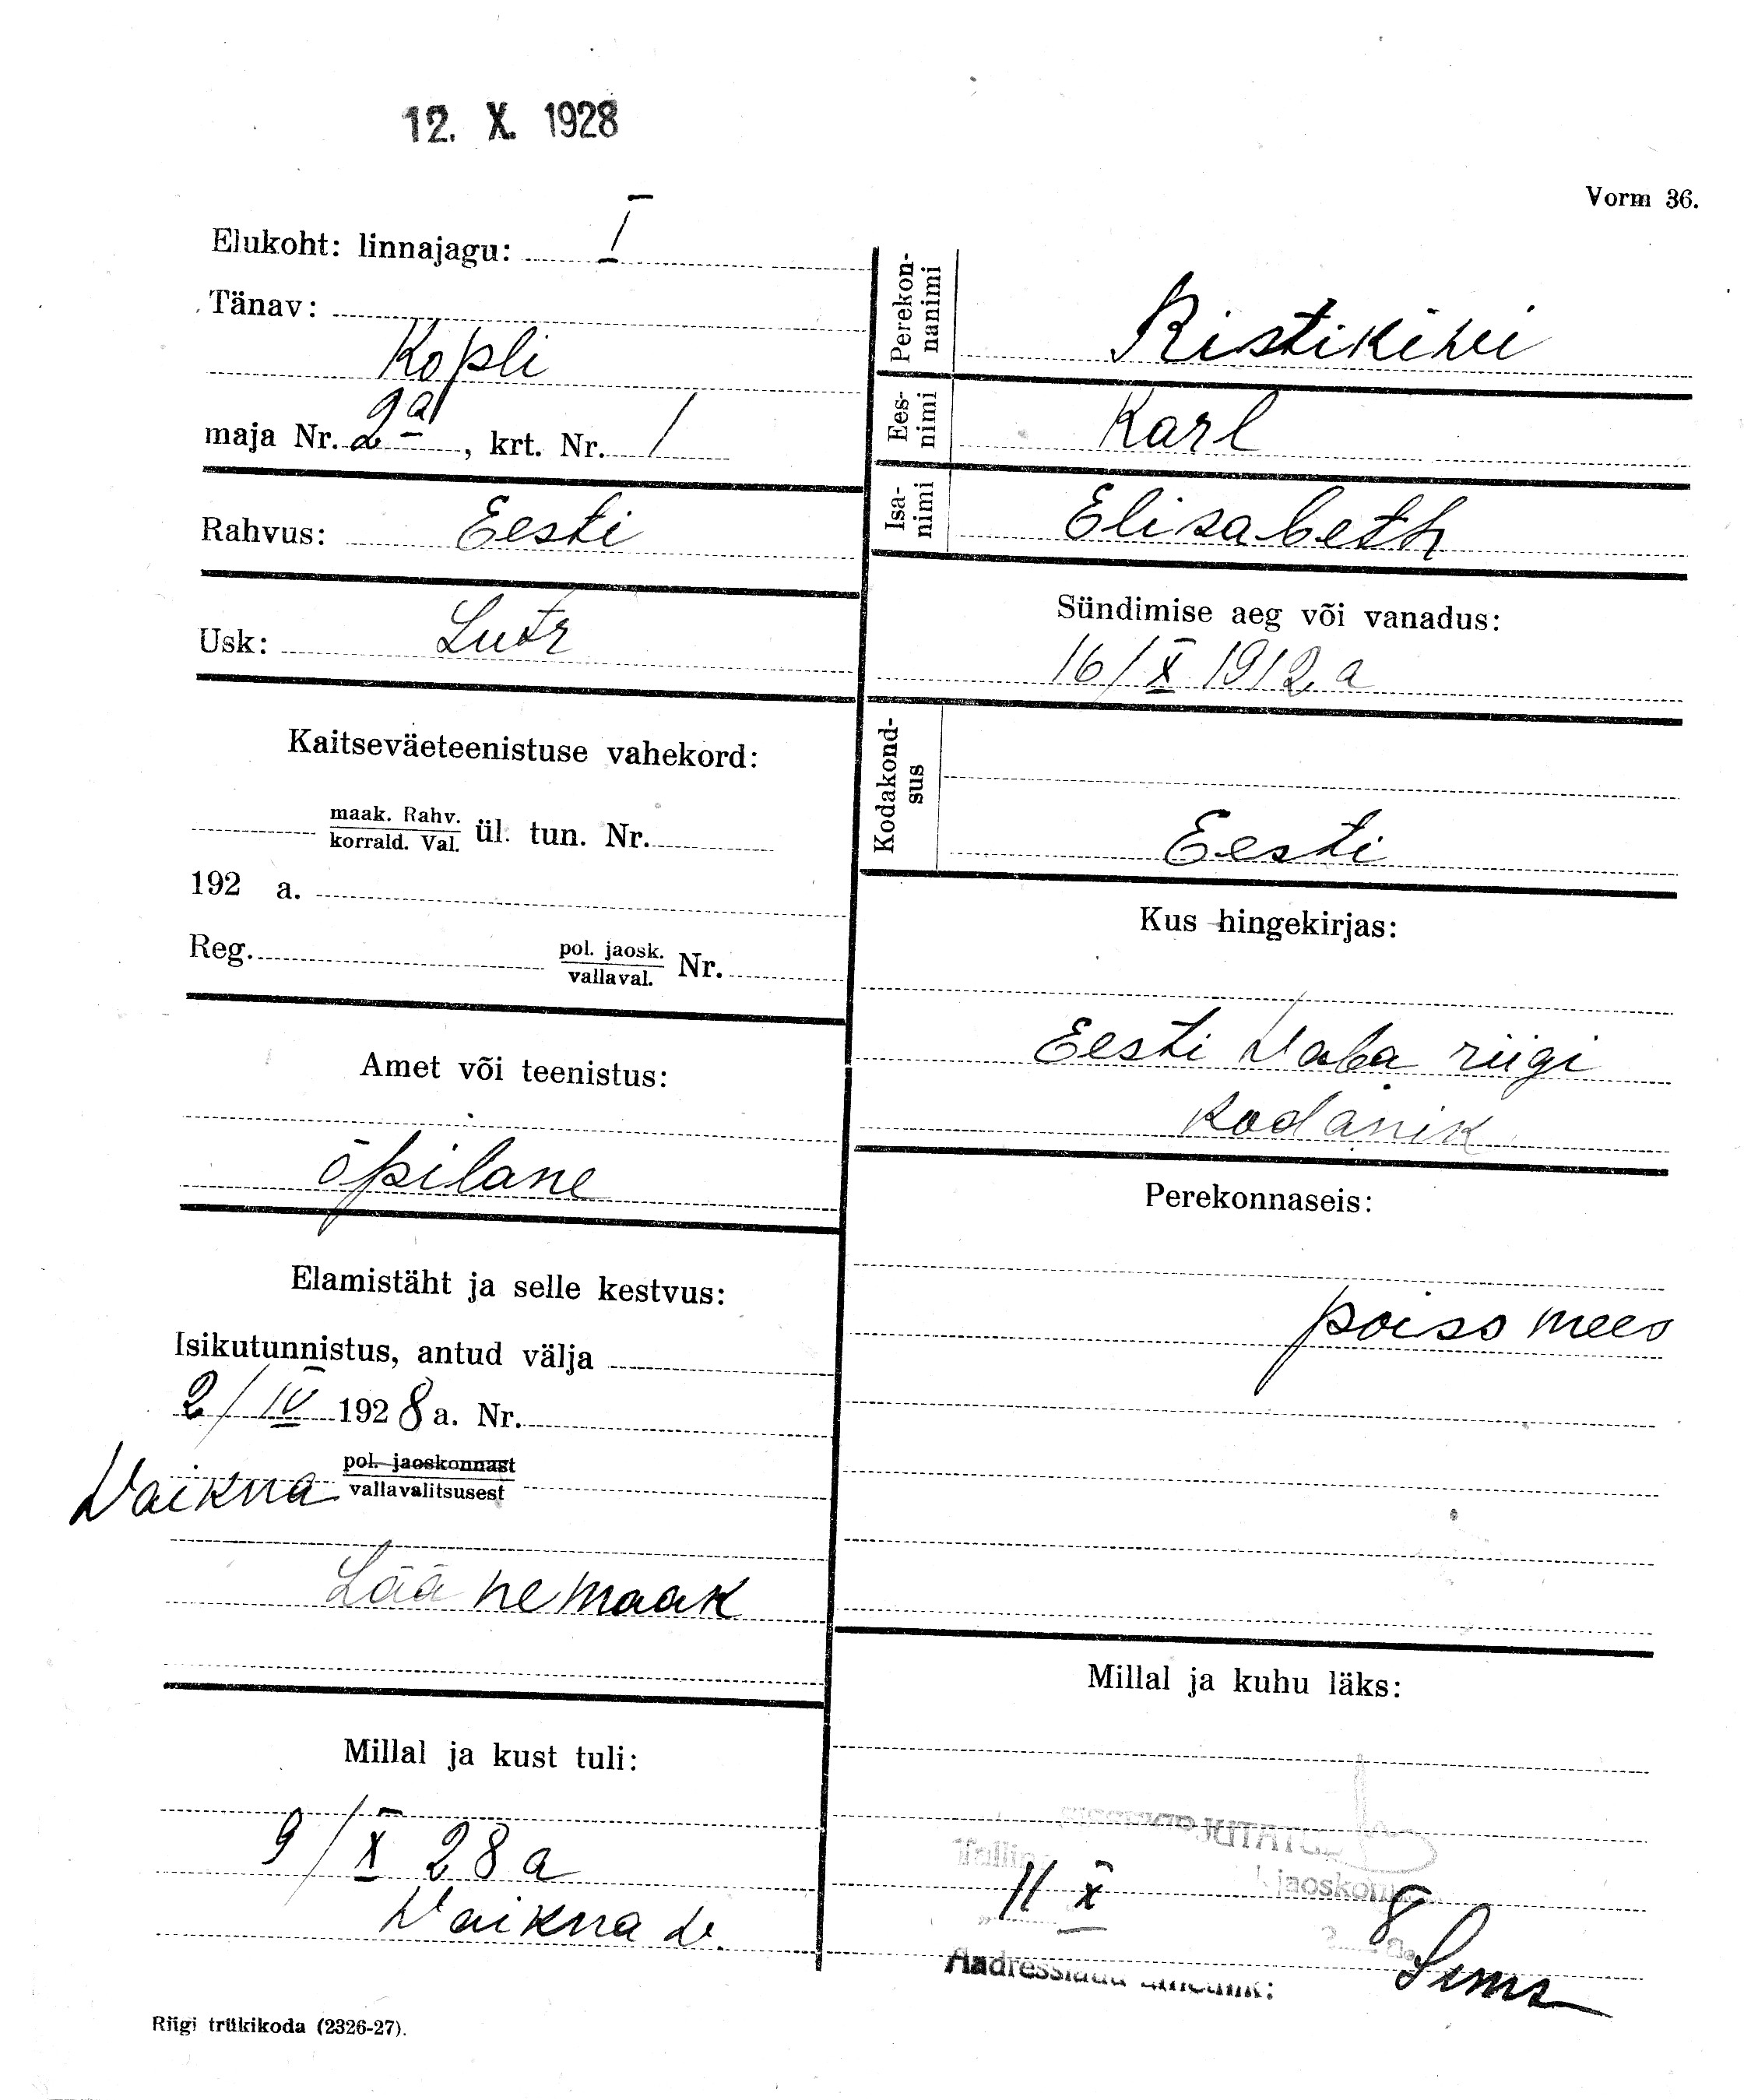 12. X. 1928
Vorm 36.
Elukoht: linnajagu: I
Tänav:
Kopli
maja Nr. 2a, krt. Nr. 1
Rahvus: Eesti
Usk: Lutr
Kaitseväeteenistuse vahekord:
maak. Rahv.
korrald. Val. ül. tun. Nr.
192 a.
Reg. pol. jaosk.
vallaval. Nr.
Amet või teenistus:
õpilane
Elamistäht ja selle kestvus:
Isikutunnistus, antud välja
2/IV 1928 a. Nr.
pol. jaoskonnast
Vaikna vallavalitsusest
Läänemaak
Millal ja kust tuli:
9/X 28 a
Vaikna v.
Perekon-
nanimi
Ristikivi
Ees-
nimi
Karl
Isa-
nimi
Elisabeth
Sündimise aeg või vanadus:
16/X 1912 a
Kodakond-
sus
Eesti
Kus hingekirjas:
Eesti Vaba riigi
kodanik
Perekonnaseis:
poissmees
Millal ja kuhu läks:
11 X 8
Riigi trükikoda (2326-27).